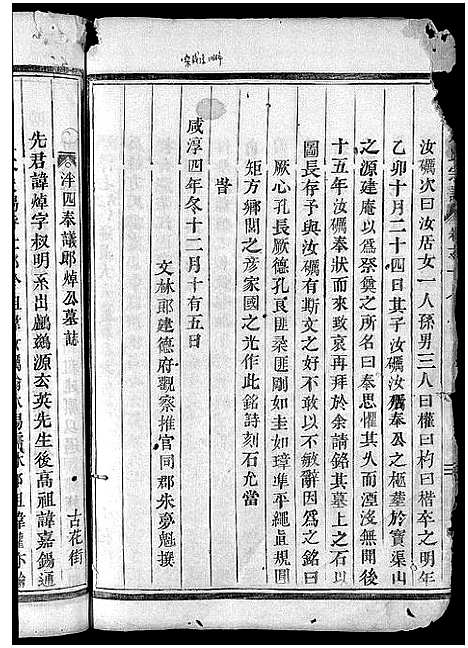 汝礪次曰汝店女一人孫男三人曰權曰杓曰楷卒之明年
乙卯十月二十四日其子汝礪汝店奉公之柩塟於寶渠山
之源建庵以爲祭奠之所名曰奉思懼其久而湮沒無聞後
十五年汝礪奉狀而來致哀再拜於余請銘其墓上之石以
圖長存予與汝礪有斯文之好不敢以不敏辭因爲之銘曰
厥心孔長厥德孔良匪柔匪剛如圭如璋準平繩直規圓
矩方鄉閭之彥家國之光作此銘詩刻石允當
旹
咸淳四年冬十二月十有五日
文林郎建德府觀察推官同郡朱夢魁撰
泮四奉議郎焯公墓誌
古花街
先君諱焯字叔明系出鸕鷀源玄英先生後高祖諱嘉錫通